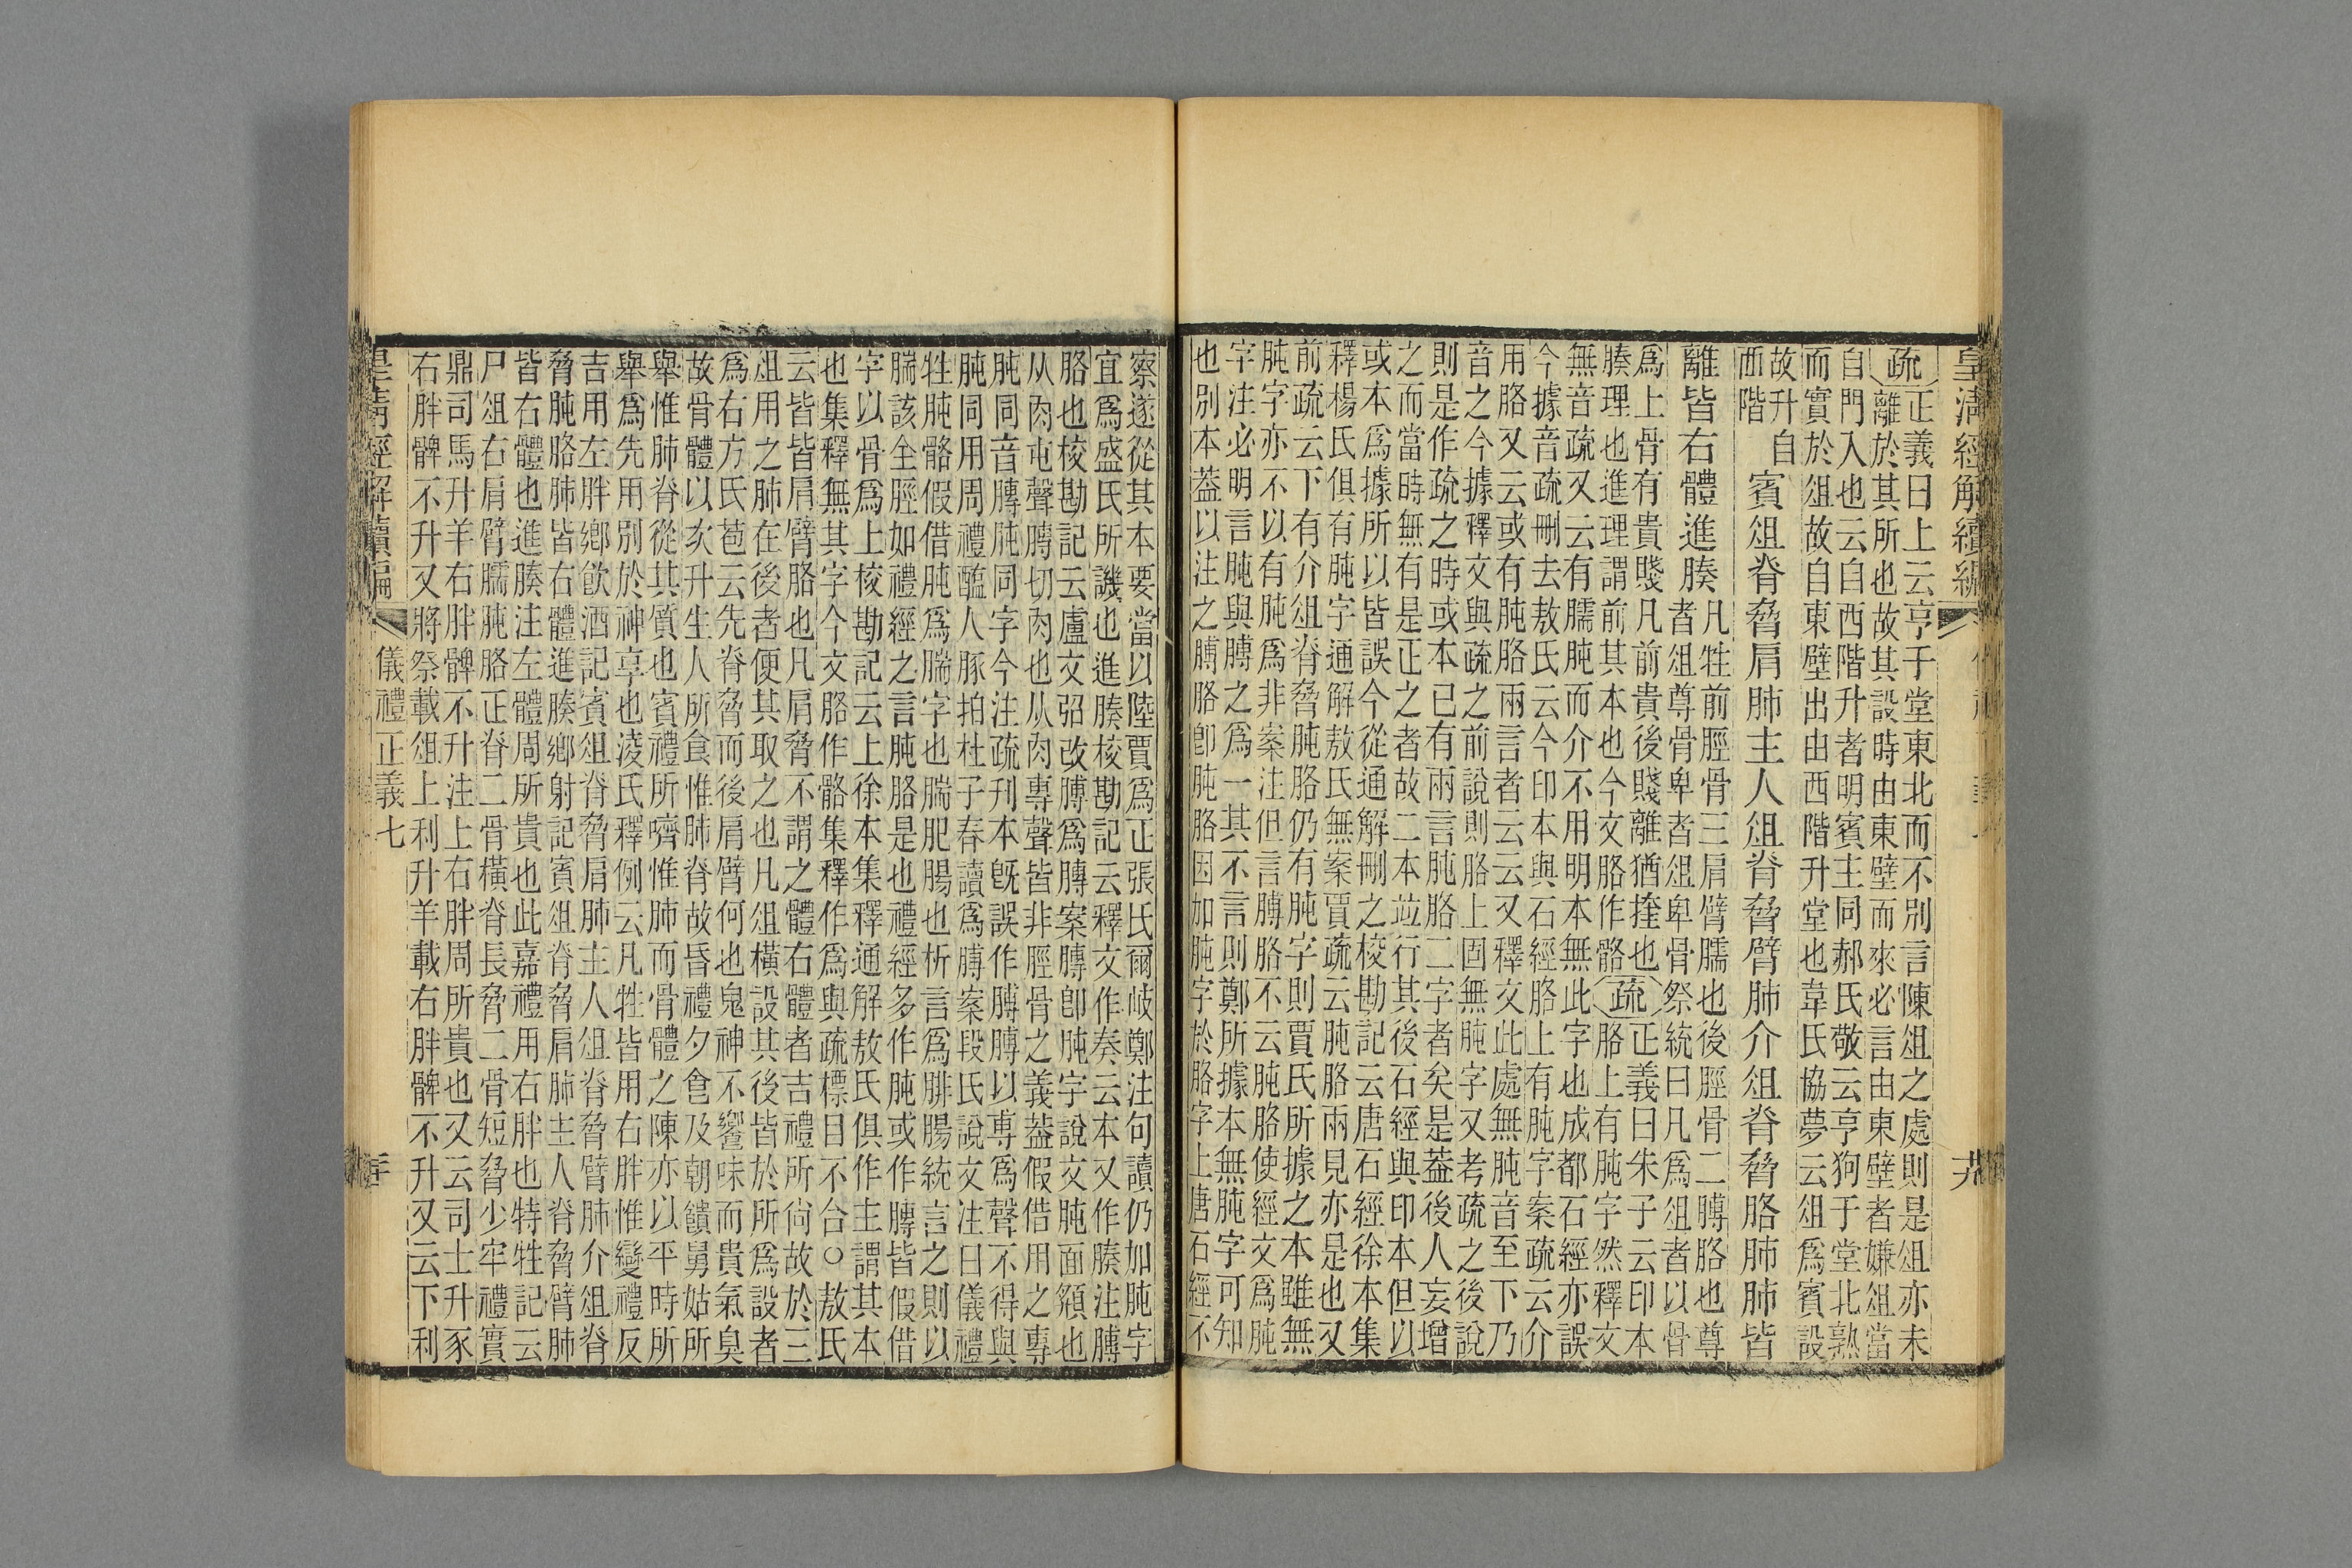 皇清經解續編
疏
正義曰上云亨于堂東北而不別言陳俎之處則是俎亦未
離於其所也故其設時由東壁而來必言由東壁者嫌俎當
自門入也云自西階升者明賓主同郝氏敬云亨狗于堂北孰
而實於俎故自東壁出由西階升堂也韋氏協夢云俎爲賓設
故升自
西階
賓俎脊脅肩肺主人俎脊脅臂肺介俎脊脅胳肺肺皆
離皆右體進腠
凡牲前脛骨三肩臂臑也後脛骨二膊胳也尊
者俎尊骨卑者俎卑骨祭統曰凡爲俎者以骨
爲上骨有貴賤凡前貴後賤離猶㧢也
腠理也進理謂前其本也今文胳作骼
疏
正義曰朱子云印本
胳上有肫字然釋文
無音疏又云有臑肫而介不用明本無此字也成都石經亦誤
今據音疏刪去敖氏云今印本與石經胳上有肫字案疏云介
用胳又云或有肫胳兩言者云云又釋文此處無肫音至下乃
音之今據釋文與疏之前說則胳上固無肫字又考疏之後說
則是作疏之時或本已有兩言肫胳二字者矣是蓋後人妄增
之而當時無有是正之者故二本竝行其後石經與印本但以
或本爲據所以皆誤今從通解刪之校勘記云唐石經徐本集
釋楊氏俱有肫字通解敖氏無案賈疏云肫胳兩見亦是也又
前疏云下有介俎脊脅肫胳仍有肫字則賈氏所據之本雖無
肫字亦不以有肫爲非案注但言膊胳不云肫胳使經文爲肫
字注必明言肫與膊之爲一其不言則鄭所據本無肫字可知
也別本蓋以注之膊胳卽肫胳因加肫字於胳字上唐石經不
察遂從其本要當以陸賈爲正張氏爾岐鄭注句讀仍加肫字
宜爲盛氏所譏也進腠校勘記云釋文作奏云本又作腠注膊
胳也校勘記云盧文弨改膊爲膞案膞卽肫字說文肫面頯也
从肉屯聲膞切肉也从肉專聲皆非脛骨之義蓋假借用之專
肫同音膞肫同字今注疏刊本旣誤作膊膊以尃爲聲不得與
肫同用周禮醢人豚拍杜子春讀爲膊案段氏說文注曰儀禮
牲肫骼假借肫爲腨字也腨肥腸也析言爲腓腸統言之則以
腨該全脛如禮經之言肫胳是也禮經多作肫或作膞皆假借
字以骨爲上校勘記云上徐本集釋通解敖氏俱作主謂其本
也集釋無其字今文胳作骼集釋作爲與疏標目不合○敖氏
云皆皆肩臂胳也凡肩脅不謂之體右體者吉禮所尙故於三
俎用之肺在後者便其取之也凡俎橫設其後皆於所爲設者
爲右方氏苞云先脊脅而後肩臂何也鬼神不饗味而貴氣臭
故骨體以次升生人所食惟肺脊故昏禮夕食及朝饋舅姑所
舉惟肺脊從其質也賓禮所嚌惟肺而骨體之陳亦以平時所
舉爲先用別於神享也淩氏釋例云凡牲皆用右胖惟變禮反
吉用左胖鄉飮酒記賓俎脊脅肩肺主人俎脊脅臂肺介俎脊
脅肫胳肺皆右體進腠鄉射記賓俎脊脅肩肺主人脊脅臂肺
皆右體也進腠注左體周所貴也此嘉禮用右胖也特牲記云
尸俎右肩臂臑肫胳正脊二骨橫脊長脅二骨短脅少牢禮實
鼎司馬升羊右胖髀不升注上右胖周所貴也又云司士升豕
右胖髀不升又將祭載俎上利升羊載右胖髀不升又云下利
皇清經解續編 儀禮正義七